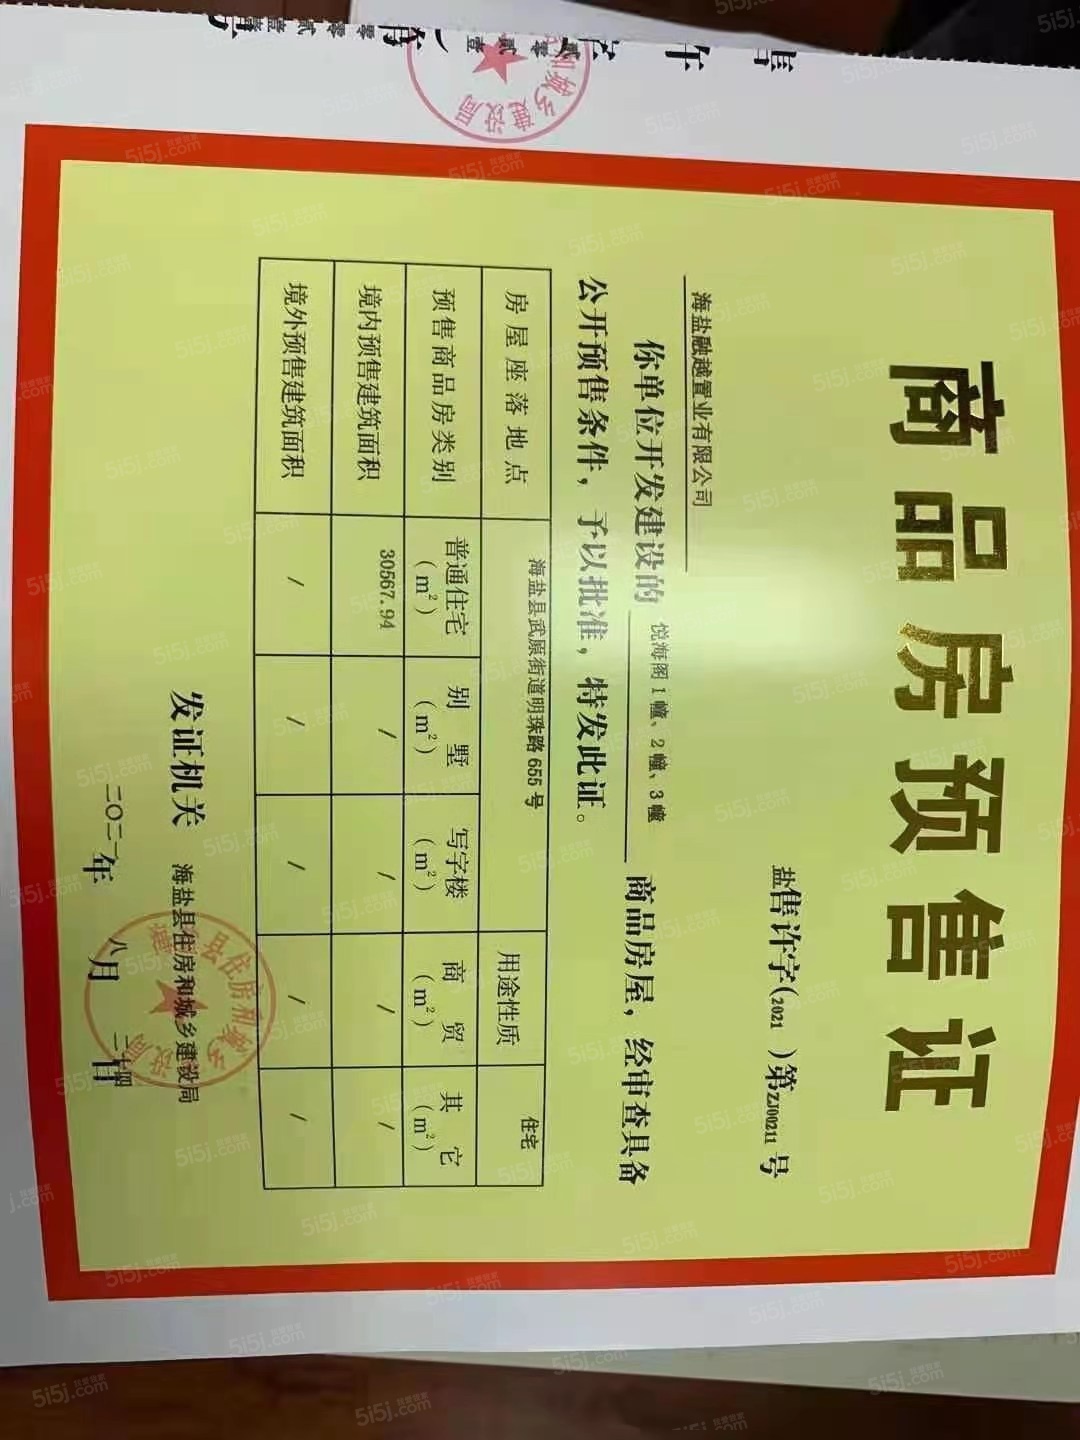 商品房预售证
盐售许字(2021)第ZJ00211号
海盐融越置业有限公司
你单位开发建设的 悦海阁1幢、2幢、3幢 商品房屋，经审查具备
公开预售条件，予以批准，特发此证。
房屋座落地点 海盐县武原街道明珠路655号 用途性质 住宅
预售商品房类别 普通住宅(m²) 别墅(m²) 写字楼(m²) 商贸(m²) 其它(m²)
境内预售建筑面积 30567.94 / / / /
境外预售建筑面积 / / / / /
发证机关 海盐县住房和城乡建设局
二〇二一年 八月 二十四日
5i5j.com